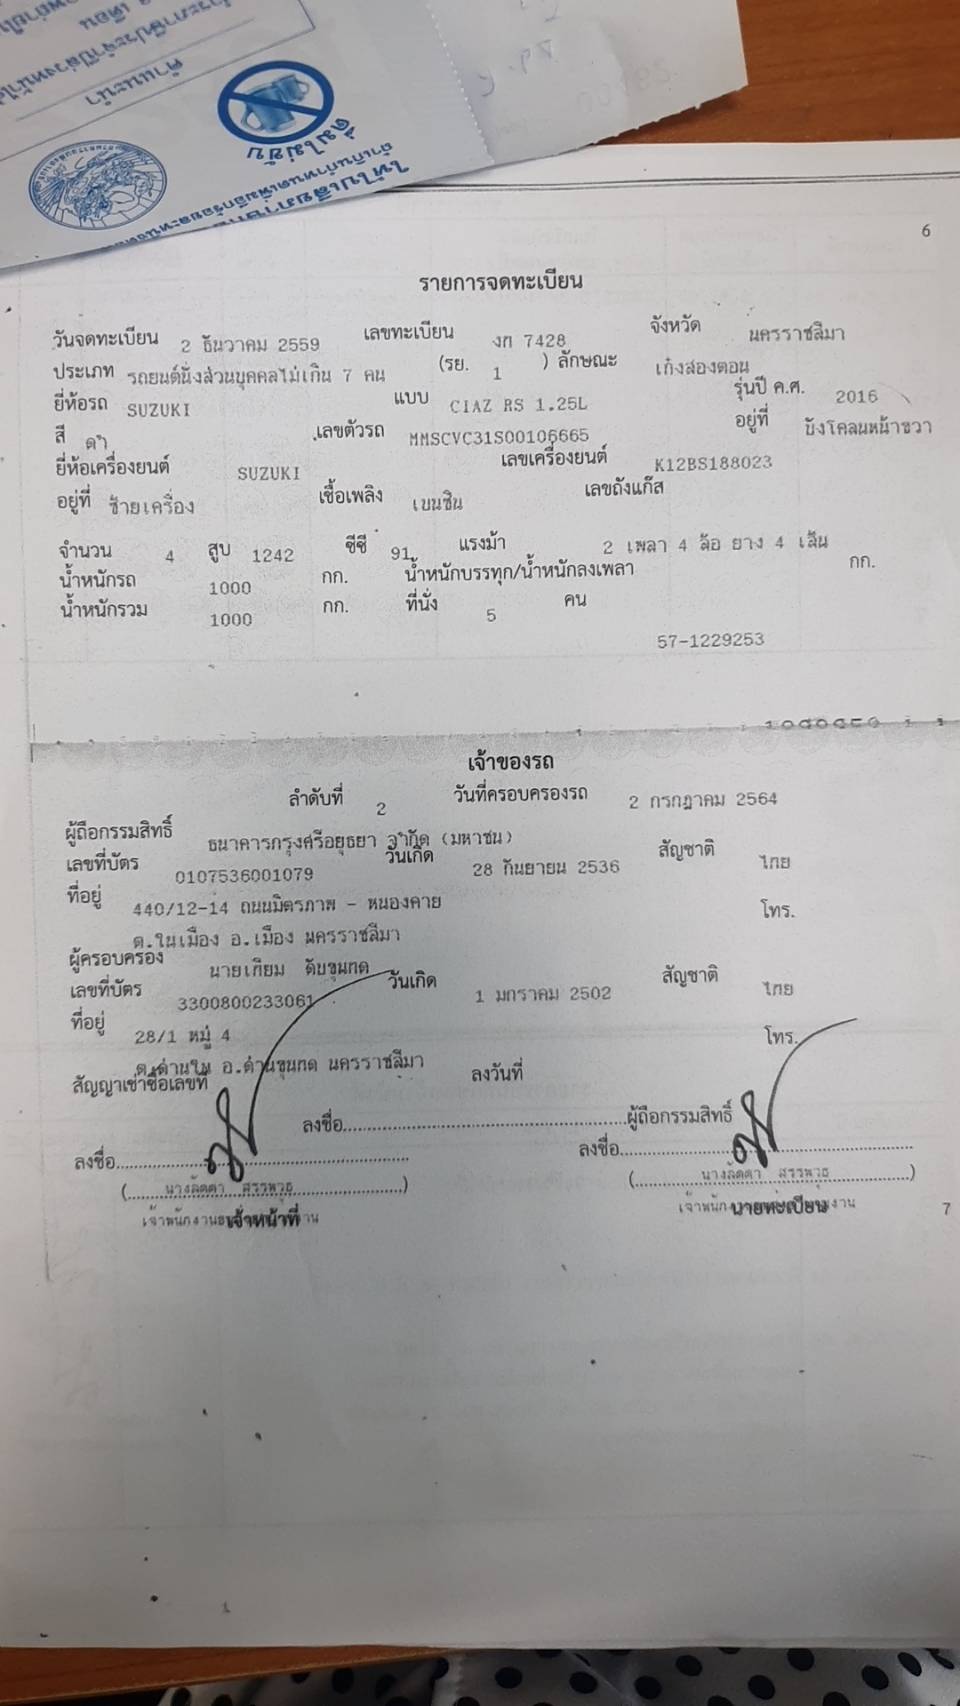 คำแนะนำ
ดื่มไม่ขับ
6
รายการจดทะเบียน
วันจดทะเบียน 2 ธันวาคม 2559 เลขทะเบียน งก 7428 จังหวัด นครราชสีมา
ประเภท รถยนต์นั่งส่วนบุคคลไม่เกิน 7 คน (รย. 1 ) ลักษณะ เก๋งสองตอน
ยี่ห้อรถ SUZUKI แบบ CIAZ RS 1.25L รุ่นปี ค.ศ. 2016
สี ดำ เลขตัวรถ MMSCVC31S00106665 อยู่ที่ บังโคลนหน้าขวา
ยี่ห้อเครื่องยนต์ SUZUKI เลขเครื่องยนต์ K12BS188023
อยู่ที่ ซ้ายเครื่อง เชื้อเพลิง เบนซิน เลขถังแก๊ส
จำนวน 4 สูบ 1242 ซีซี 91 แรงม้า 2 เพลา 4 ล้อ ยาง 4 เส้น
น้ำหนักรถ 1000 กก. น้ำหนักบรรทุก/น้ำหนักลงเพลา กก.
น้ำหนักรวม 1000 กก. ที่นั่ง 5 คน
57-1229253
เจ้าของรถ
ลำดับที่ 2 วันที่ครอบครองรถ 2 กรกฎาคม 2564
ผู้ถือกรรมสิทธิ์ ธนาคารกรุงศรีอยุธยา จำกัด (มหาชน)
เลขที่บัตร 0107536001079 วันเกิด 28 กันยายน 2536 สัญชาติ ไทย
ที่อยู่ 440/12-14 ถนนมิตรภาพ - หนองคาย โทร.
ต.ในเมือง อ.เมือง นครราชสีมา
ผู้ครอบครอง นายเทียม ดับขุนทด
เลขที่บัตร 3300800233061 วันเกิด 1 มกราคม 2502 สัญชาติ ไทย
ที่อยู่ 28/1 หมู่ 4 โทร.
ต.ด่านใน อ.ด่านขุนทด นครราชสีมา
สัญญาเช่าซื้อเลขที่ ลงวันที่
ลงชื่อ ผู้ถือกรรมสิทธิ์
ลงชื่อ ลงชื่อ
(นางลัดดา สรรพวุธ) (นางลัดดา สรรพวุธ)
เจ้าหน้าที่ นายทะเบียน
7